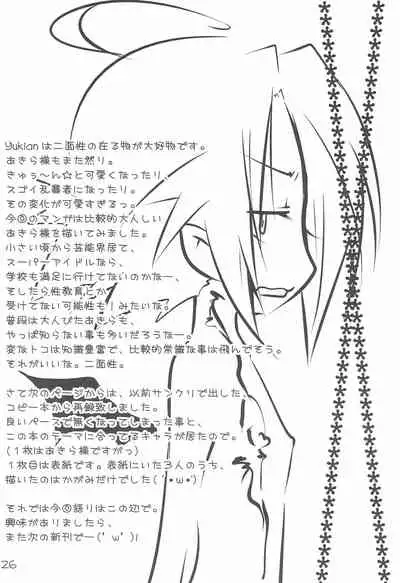 Yukianは二面性の在る物が大好物です。
あきら様もまた然り。
きゅぅ～ん☆と可愛くなったり、
スゴイ乱暴者になったり。
その変化が可愛すぎるっ。
今回のマンガは比較的大人しい
あきら様を描いてみました。
小さい頃から芸能界居て、
スーパーアイドルなら、
学校も満足に行けてないのかなー、
そしたら性教育とか
受けてない可能性も！みたいな。
普段は大人びたあきらも、
やっぱ知らない事も多いだろうなー。
変なトコは知識豊富で、比較的常識な事は飛んでそう。
それがいいな。二面性。
さて次のページからは、以前サンクリで出した、
コピー本から再録致しました。
良いペースで無くなってしまった事と、
この本のテーマに合ってるキャラが居たので。
(1枚はあきら様ですがっ)
1枚目は表紙です。表紙にいた3人のうち、
描いたのはかがみだけでした( '・ω・')
それでは今回語りはこの辺で。
興味がありましたら、
また次の新刊でー( 'ω')ﾉ
26